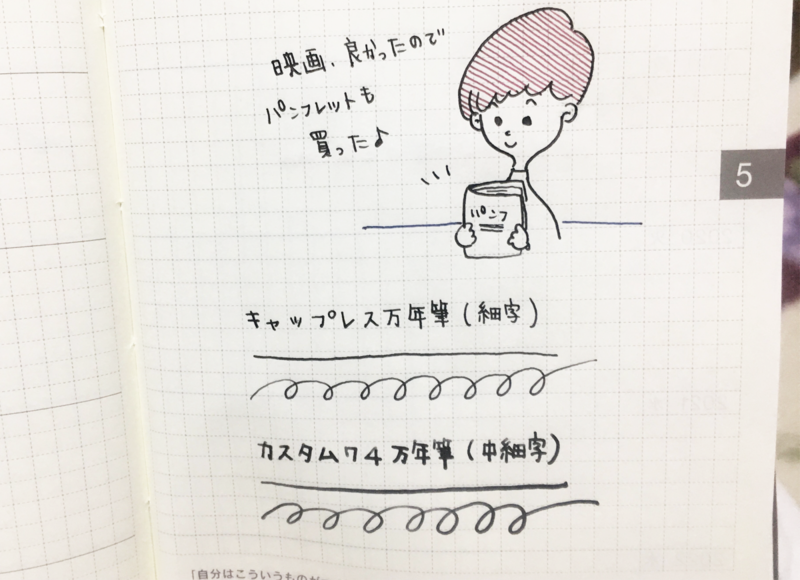 映画、良かったので
パンフレットも
買った♪
5
パンフ
キャップレス万年筆(細字)
カスタム74万年筆(中細字)
「自分はこういうものが